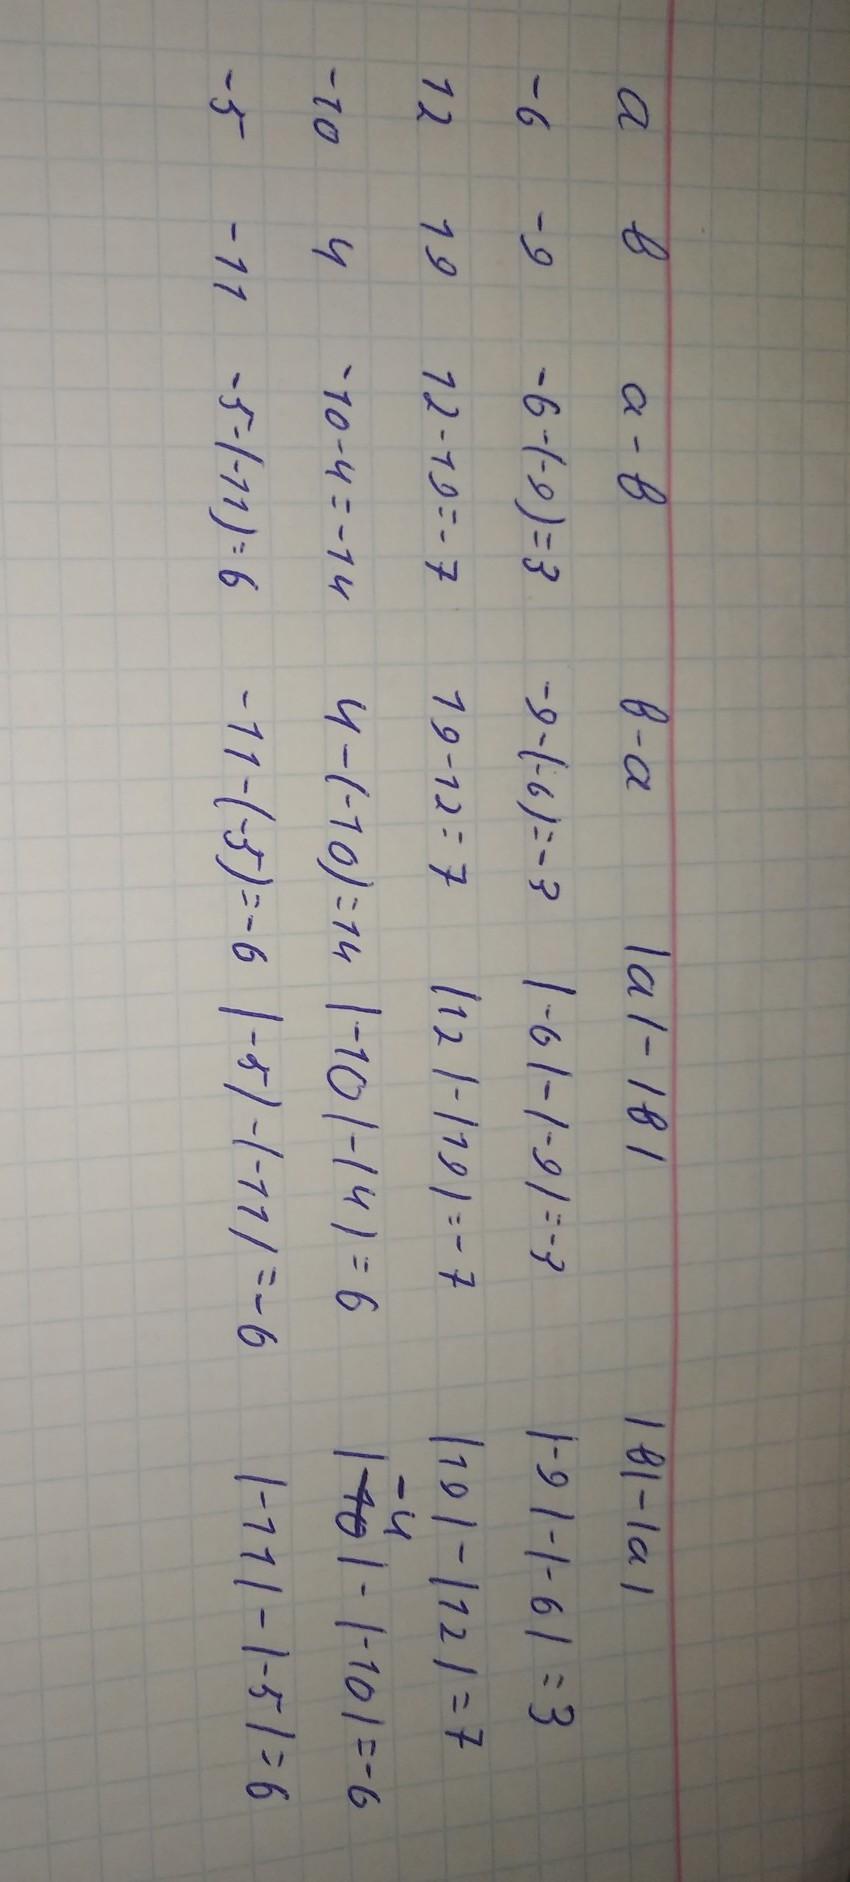 a в a-в в-a |a|-|в| |в|-|a|
-6 -9 -6-(-9)=3 -9-(-6)=-3 |-6|-|-9|=-3 |-9|-|-6|=3
12 19 12-19=-7 19-12=7 |12|-|19|=-7 |19|-|12|=7
-10 4 -10-4=-14 4-(-10)=14 |-10|-|4|=6 |-4|-|-10|=-6
-5 -11 -5-(-11)=6 -11-(-5)=-6 |-5|-|-11|=-6 |-11|-|-5|=6